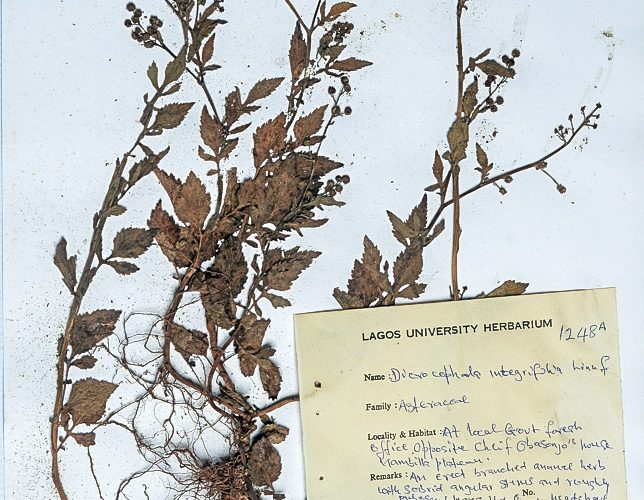 LAGOS UNIVERSITY HERBARIUM 1248A
Name : Dicrocephala integrifolia Linn f
Family : Asteraceae
Locality & Habitat : At local Govt forest
office opposite Chief Obasanjo's house
Mambilla plateau.
Remarks : An erect branched annual herb
with angular stems and roughly
No.